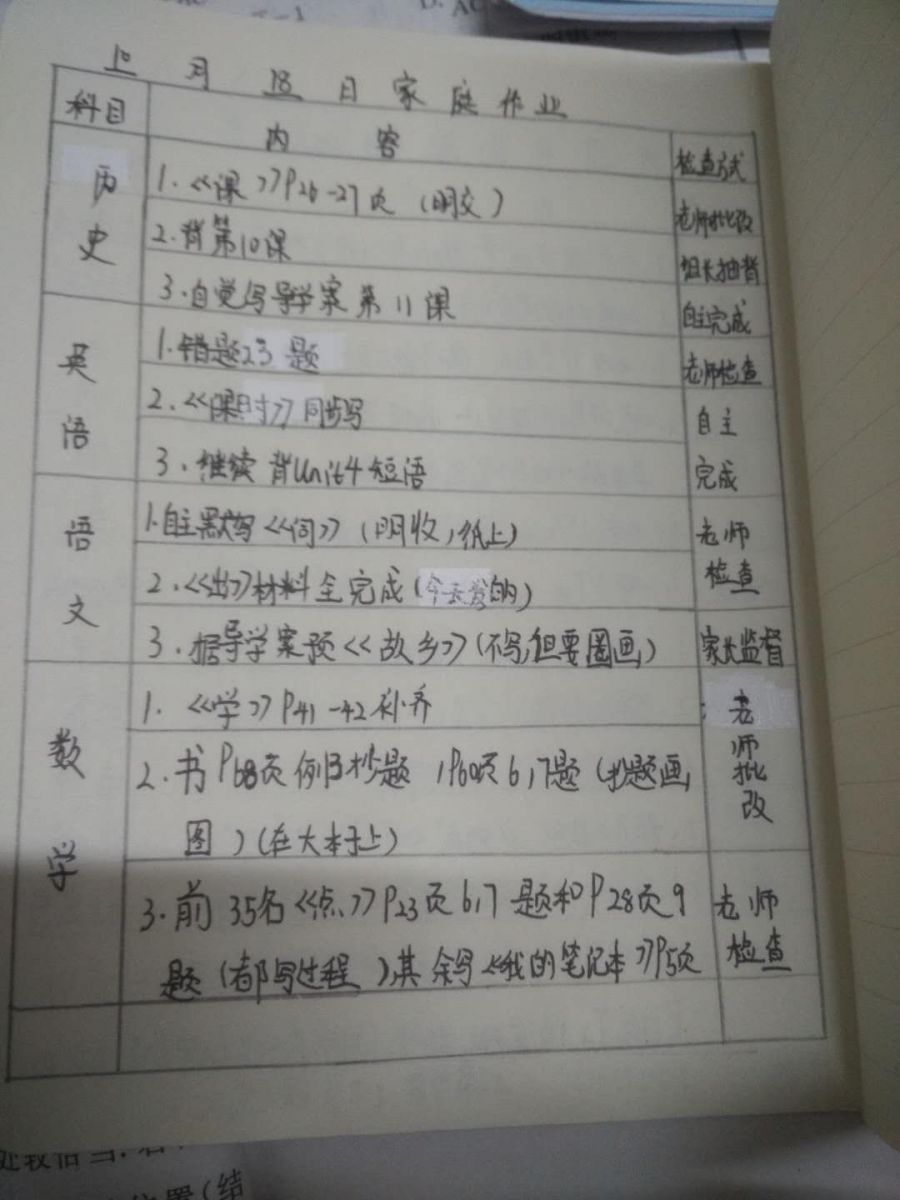 10月18日家庭作业
科目 内容 检查方式
历史
1.《课》P26-27页（明交） 老师批改
2.背第10课 组长抽背
3.自觉写导学案第11课 自主完成
英语
1.错题23题 老师检查
2.《课时》同步写 自主
3.继续背Unit4短语 完成
语文
1.自主默写《词》（明收,纸上） 老师
2.《出》材料全完成(今天发的) 检查
3.据导学案预《故乡》(不写,但要圈画) 家长监督
数学
1.《学》P41-42补齐 老师批改
2.书P68页例13抄题,P60页6,7题（抄题画
图）(在大本子上)
3.前35名《点》P23页6,7题和P28页9 老师
题（都写过程）其余写《我的笔记本》P5页 检查